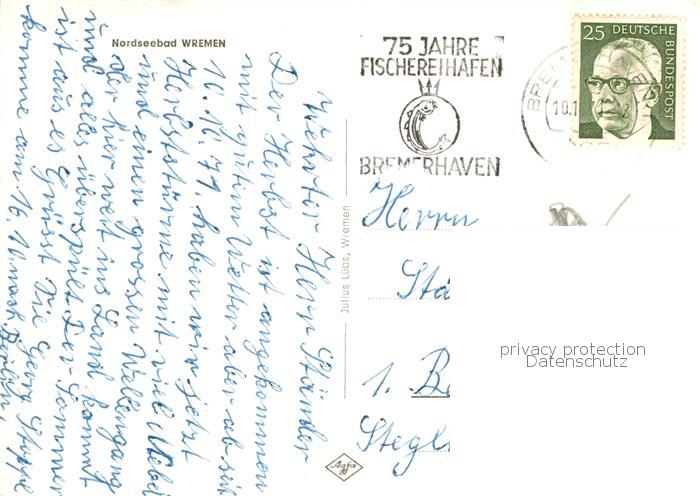 Nordseebad WREMEN
Wehrter Herr Ständer
Der Herbst ist angekommen
mit gutim Wetter aber ab seit
10.10.71. haben wir jetzt
Herbststürme mit viel Nebel
und einen grossen Wellengang
der hier weit ins Land kommt
und alles überspült Der Sommer
ist aus es Grüsst Sie Georg
komme am 16.10. nach Berlin,
Julius Lübs, Wremen
75 JAHRE
FISCHEREIHAFEN
BREMERHAVEN
25 DEUTSCHE
BUNDESPOST
Herrn
Stä
1. B
Stegl
Agfa
privacy protection
Datenschutz